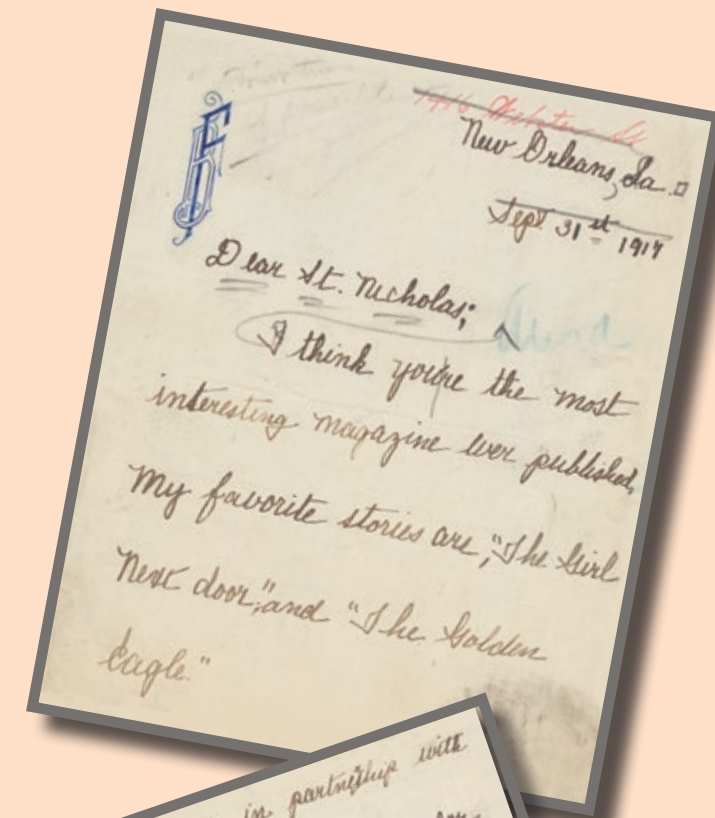 1416 Webster St.
New Orleans, La.
Sept 31st 1917
Dear St. Nicholas;
I think you're the most
interesting magazine ever published,
My favorite stories are, "The Girl
Next door," and "The Golden
Eagle."
in partnership with